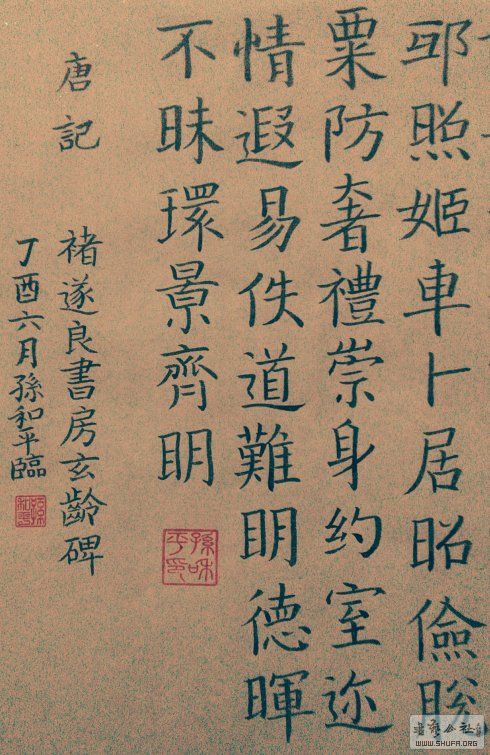 邪照姬車卜居昭儉
粟防奢禮崇身約室迩
情遐易佚道難明德暉
不昧環景齊明
唐記
褚遂良書房玄齡碑
丁酉六月孫和平臨
孫和平印
書法公社
WWW.SHUFA.ORG